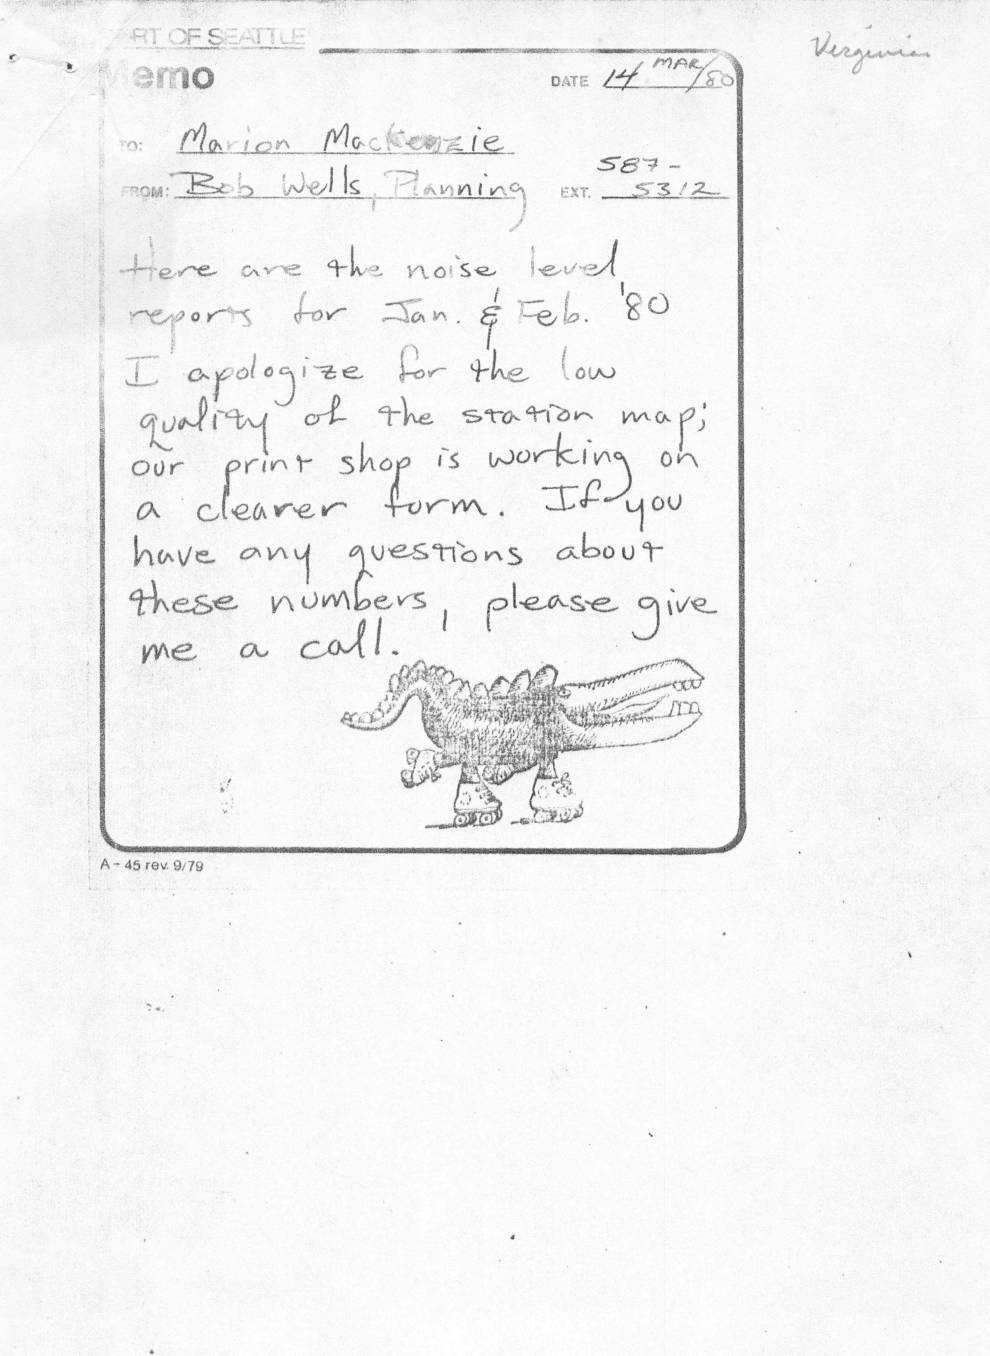 PORT OF SEATTLE
Memo
Virginia
DATE 14 MAR/80
TO: Marion Mackenzie
FROM: Bob Wells, Planning EXT. 587-5312
Here are the noise level
reports for Jan. & Feb. '80
I apologize for the low
quality of the station map;
our print shop is working on
a clearer form. If you
have any questions about
these numbers, please give
me a call.
A-45 rev. 9/79